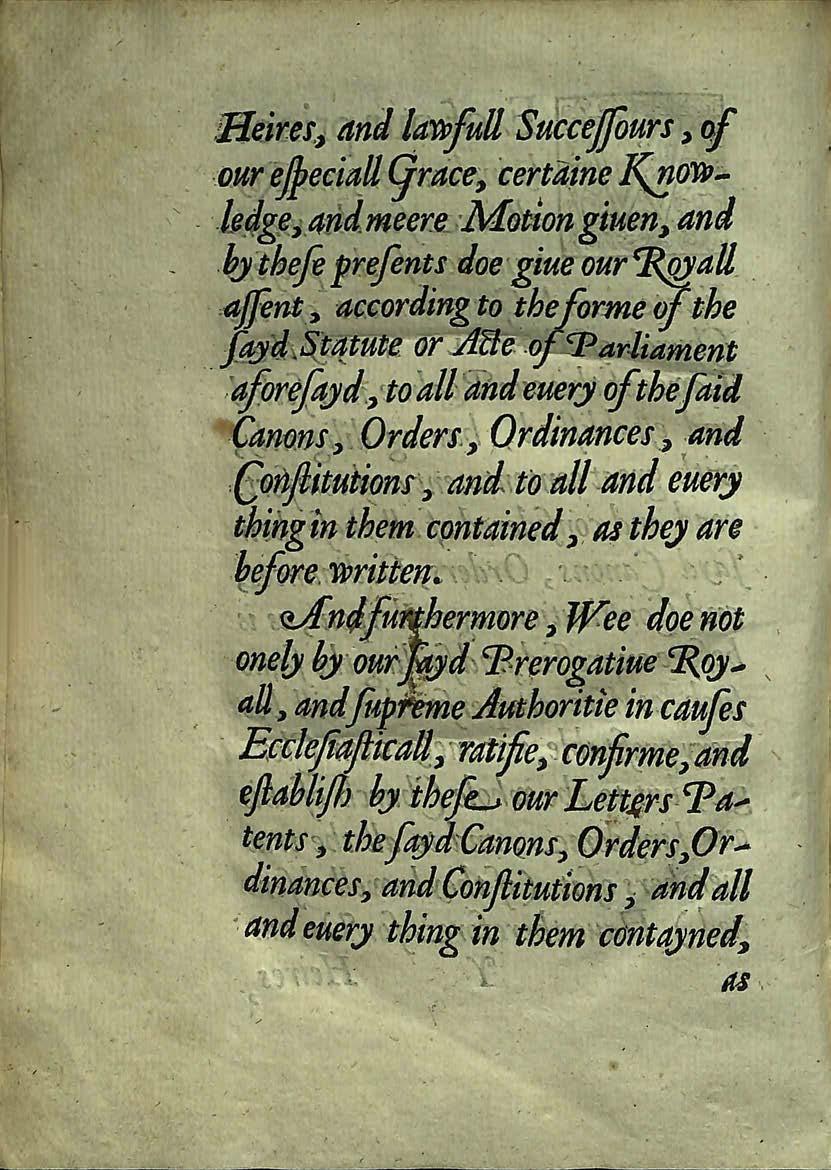 Heires, and lawfull Succeſſours, of
our eſpeciall Grace, certaine Know-
ledge, and meere Motion giuen, and
by theſe preſents doe giue our Royall
aſſent, according to the forme of the
ſayd Statute or Acte of Parliament
aforeſayd, to all and euery of the ſaid
Canons, Orders, Ordinances, and
Conſtitutions, and to all and euery
thing in them contained, as they are
before written.
And furthermore, Wee doe not
onely by our ſayd Prerogatiue Roy-
all, and ſupreme Authoritie in cauſes
Eccleſiaſticall, ratifie, confirme, and
eſtabliſh by theſe our Letters Pa-
tents, the ſayd Canons, Orders, Or-
dinances, and Conſtitutions, and all
and euery thing in them contayned,
as